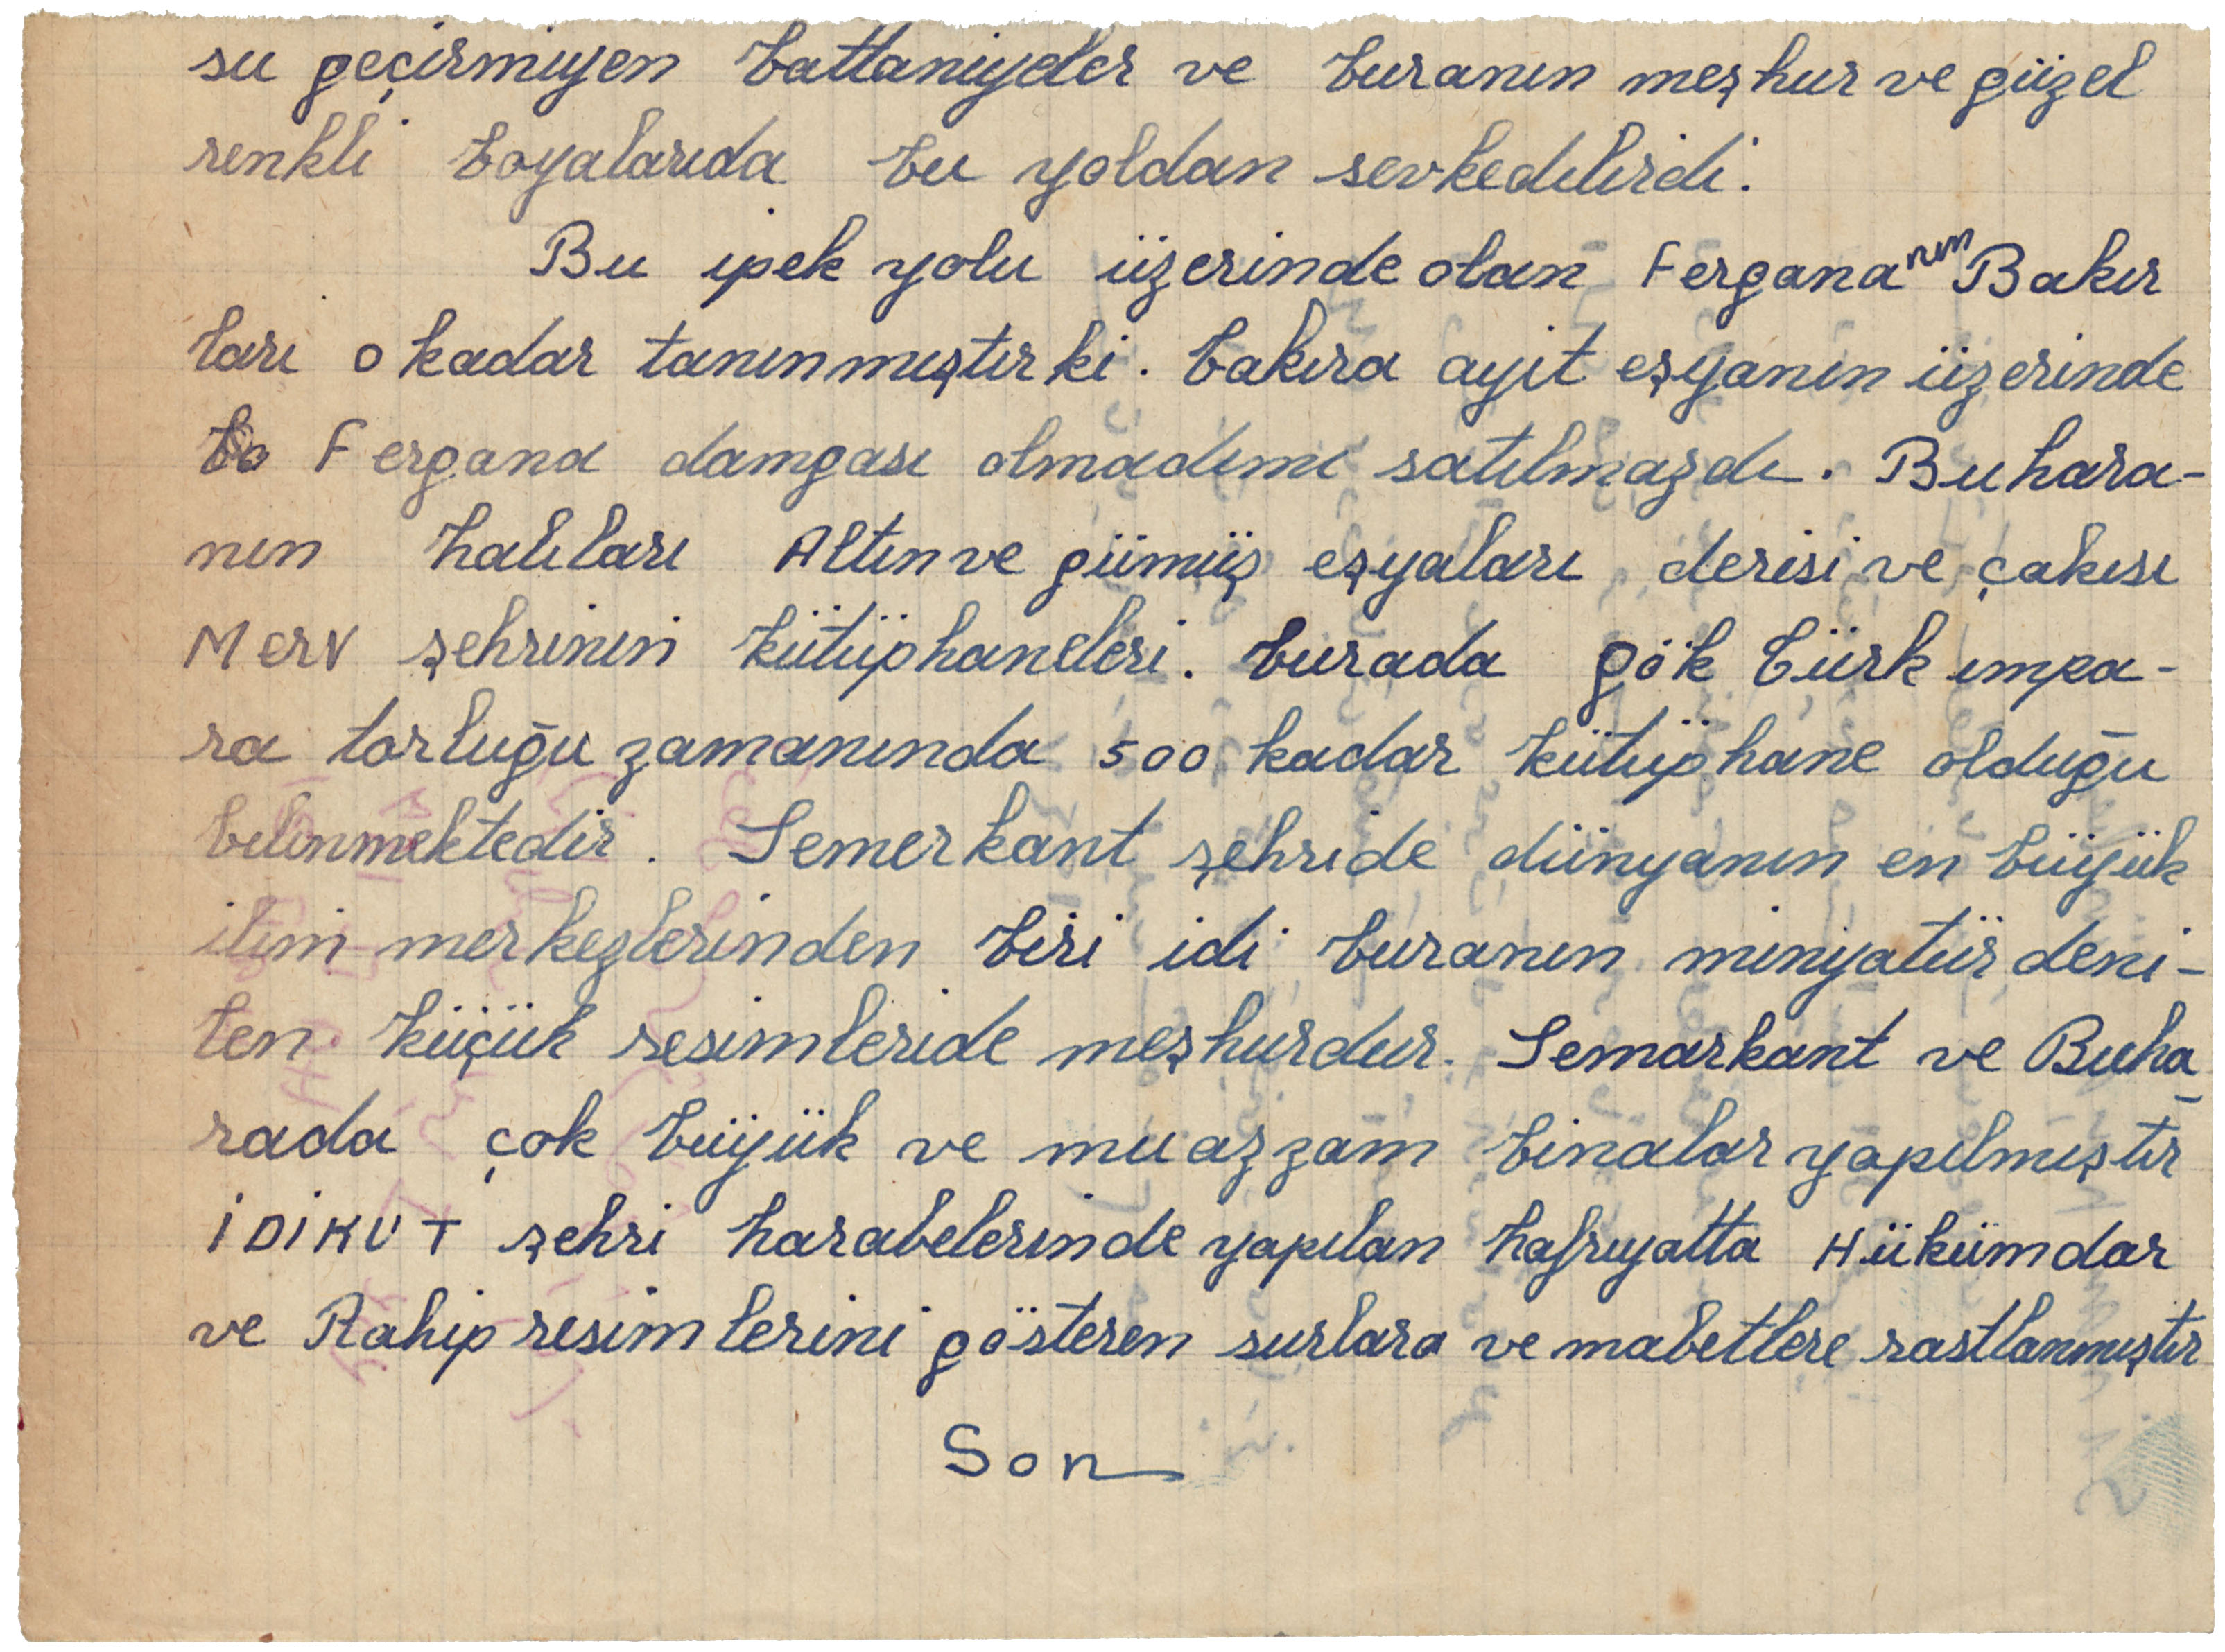 su geçirmiyen battaniyeler ve buranın meşhur ve güzel
renkli boyalarıda bu yoldan sevkedilirdi.
Bu ipek yolu üzerinde olan Fergananın Bakır
ları o kadar tanınmıştır ki. bakıra ayit eşyanın üzerinde
Fergana damgası olmadımı satılmazdı. Buhara-
nın halıları Altın ve gümüş eşyaları derisi ve çakısı
Merv şehrinin kütüphaneleri. burada gök türk impa-
ra torluğu zamanında 500 kadar kütüphane olduğu
bilinmektedir. Semerkant şehride dünyanın en büyük
ilim merkezlerinden biri idi buranın minyatür deni-
len küçük resimleride meşhurdur. Semarkant ve Buha-
rada çok büyük ve muazzam binalar yapılmıştır
İDİKUT şehri harabelerinde yapılan hafriyatta Hükümdar
ve Rahip resimlerini gösteren surlara ve mabetlere rastlanmıştır
Son